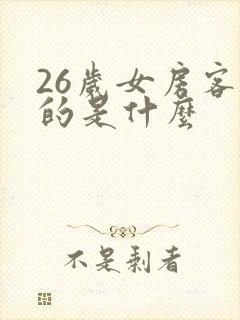 26歲女房客
的是什麼
不是剩者